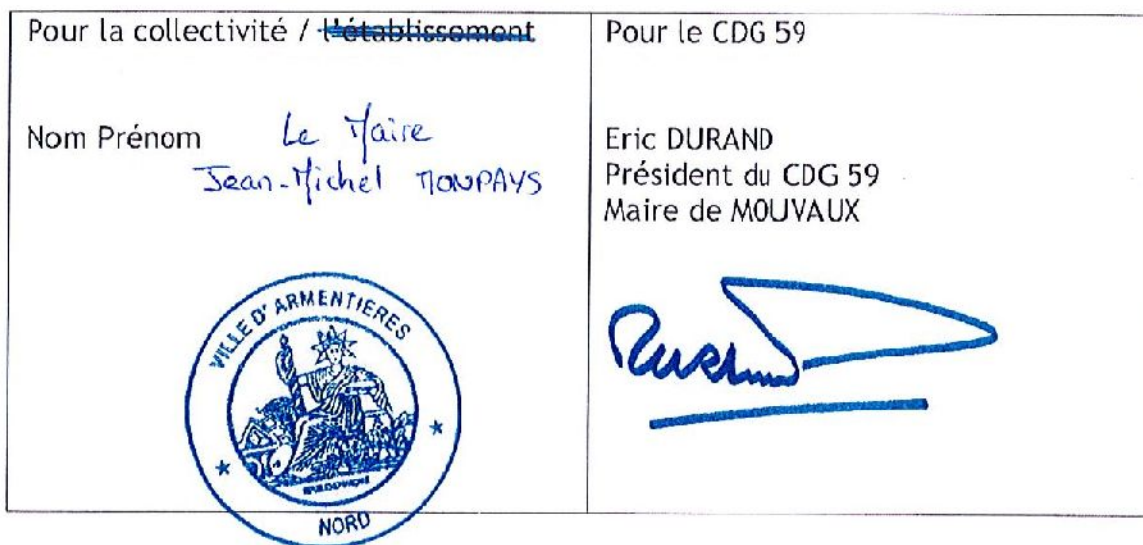 Pour la collectivité / l'établissement
Nom Prénom Le Maire
Jean-Michel MONPAYS
VILLE D'ARMENTIERES
NORD
Pour le CDG 59
Eric DURAND
Président du CDG 59
Maire de MOUVAUX
Durand